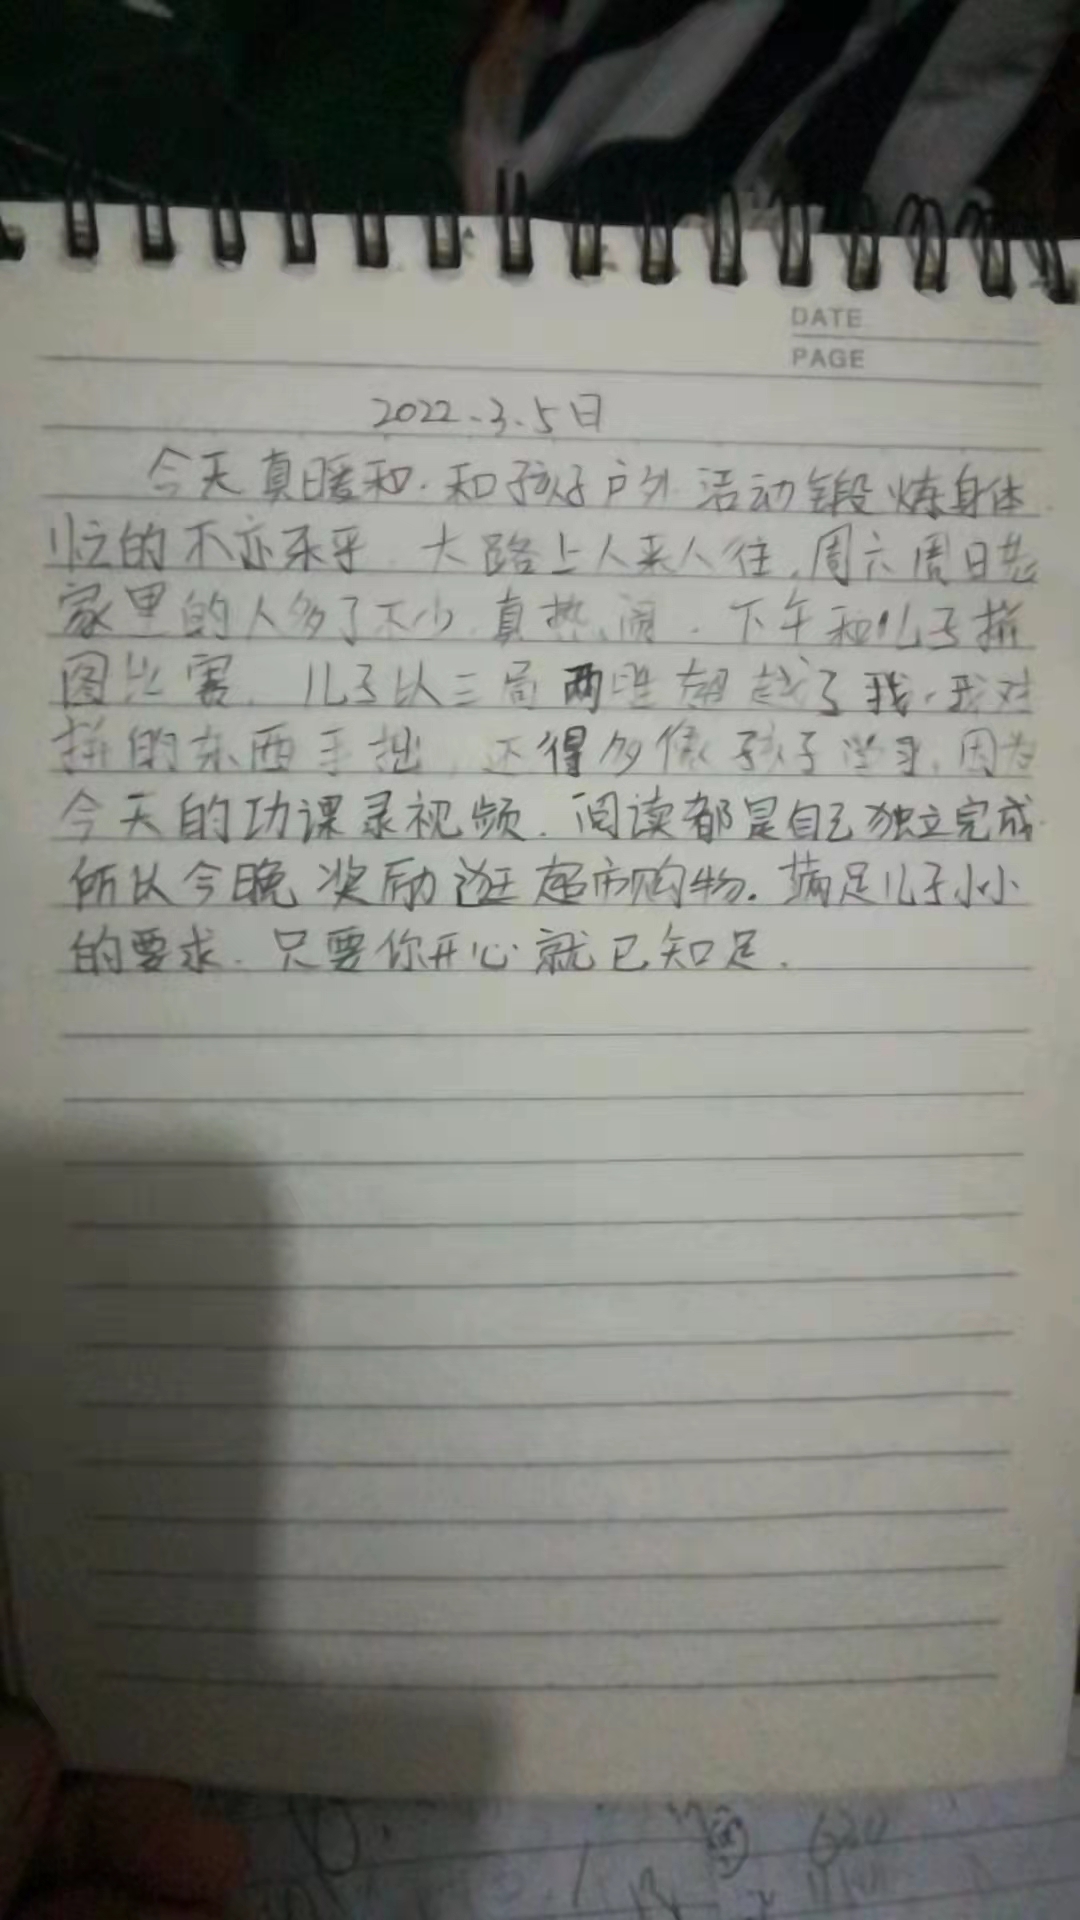 DATE
PAGE
2022.3.5日
今天真暖和.和孩子户外活动锻炼身体
忙的不亦乐乎.大路上人来人往,周六周日老
家里的人多了不少.真热闹.下午和儿子拼
图比赛.儿子以三局两胜超越了我.我对
拼的东西手拙.还得多像孩子学习.因为
今天的功课录视频.阅读都是自己独立完成
所以今晚奖励逛超市购物.满足儿子小小
的要求.只要你开心就已知足.